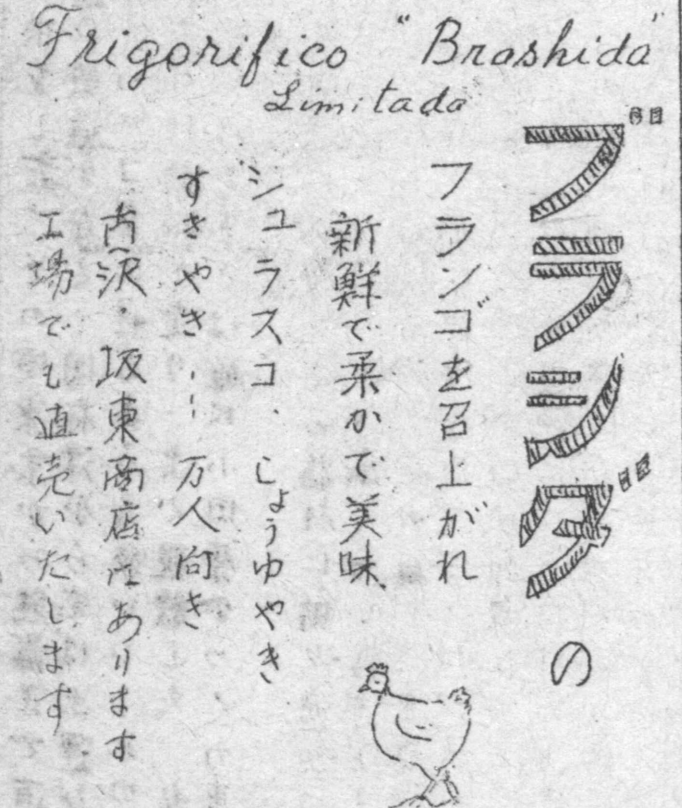 Frigorifico "Brashida"
Limitada
ブラシダの
フランゴを召上がれ
新鮮で柔かで美味
シュラスコ、しょうゆやき
すきやき…… 万人向き
古沢・坂東商店にあります
工場でも直売いたします